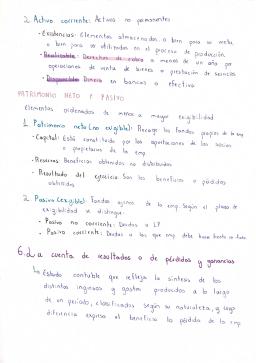 2. Activo corriente: Activos no permanentes
- Existencias: Elementos almacenados o bien para su venta
o bien para se utilizados en el proceso de producción
- Realizable: Derechos de cobro a menos de un año por
operaciones de venta de bienes o prestación de servicios
- Disponible: Dinero en bancos o efectivo
PATRIMONIO NETO Y PASIVO
Elementos ordenados de menor a mayor exigibilidad
1. Patrimonio neto (no exigible): Recoge los fondos propios de la emp
- Capital: Está constituido por las aportaciones de los socios
o propietarios de la emp
- Reservas: Beneficios obtenidos no distribuidos
- Resultado del ejercicio: Son los beneficios o pérdidas
obtenidos
2. Pasivo (exigible): Fondos ajenos de la emp. Según el plazo de
exigibilidad se distingue:
- Pasivo no corriente: Deudas a LP
- Pasivo corriente: Deudas a las que emp debe hacer frente
6. La cuenta de resultados o de pérdidas y ganancias
Estado contable que refleja la síntesis de los
distintos ingresos y gastos producidos a lo largo
de un periodo, clasificados según su naturaleza, y cuya
diferencia expresa el beneficio la pérdida de la emp